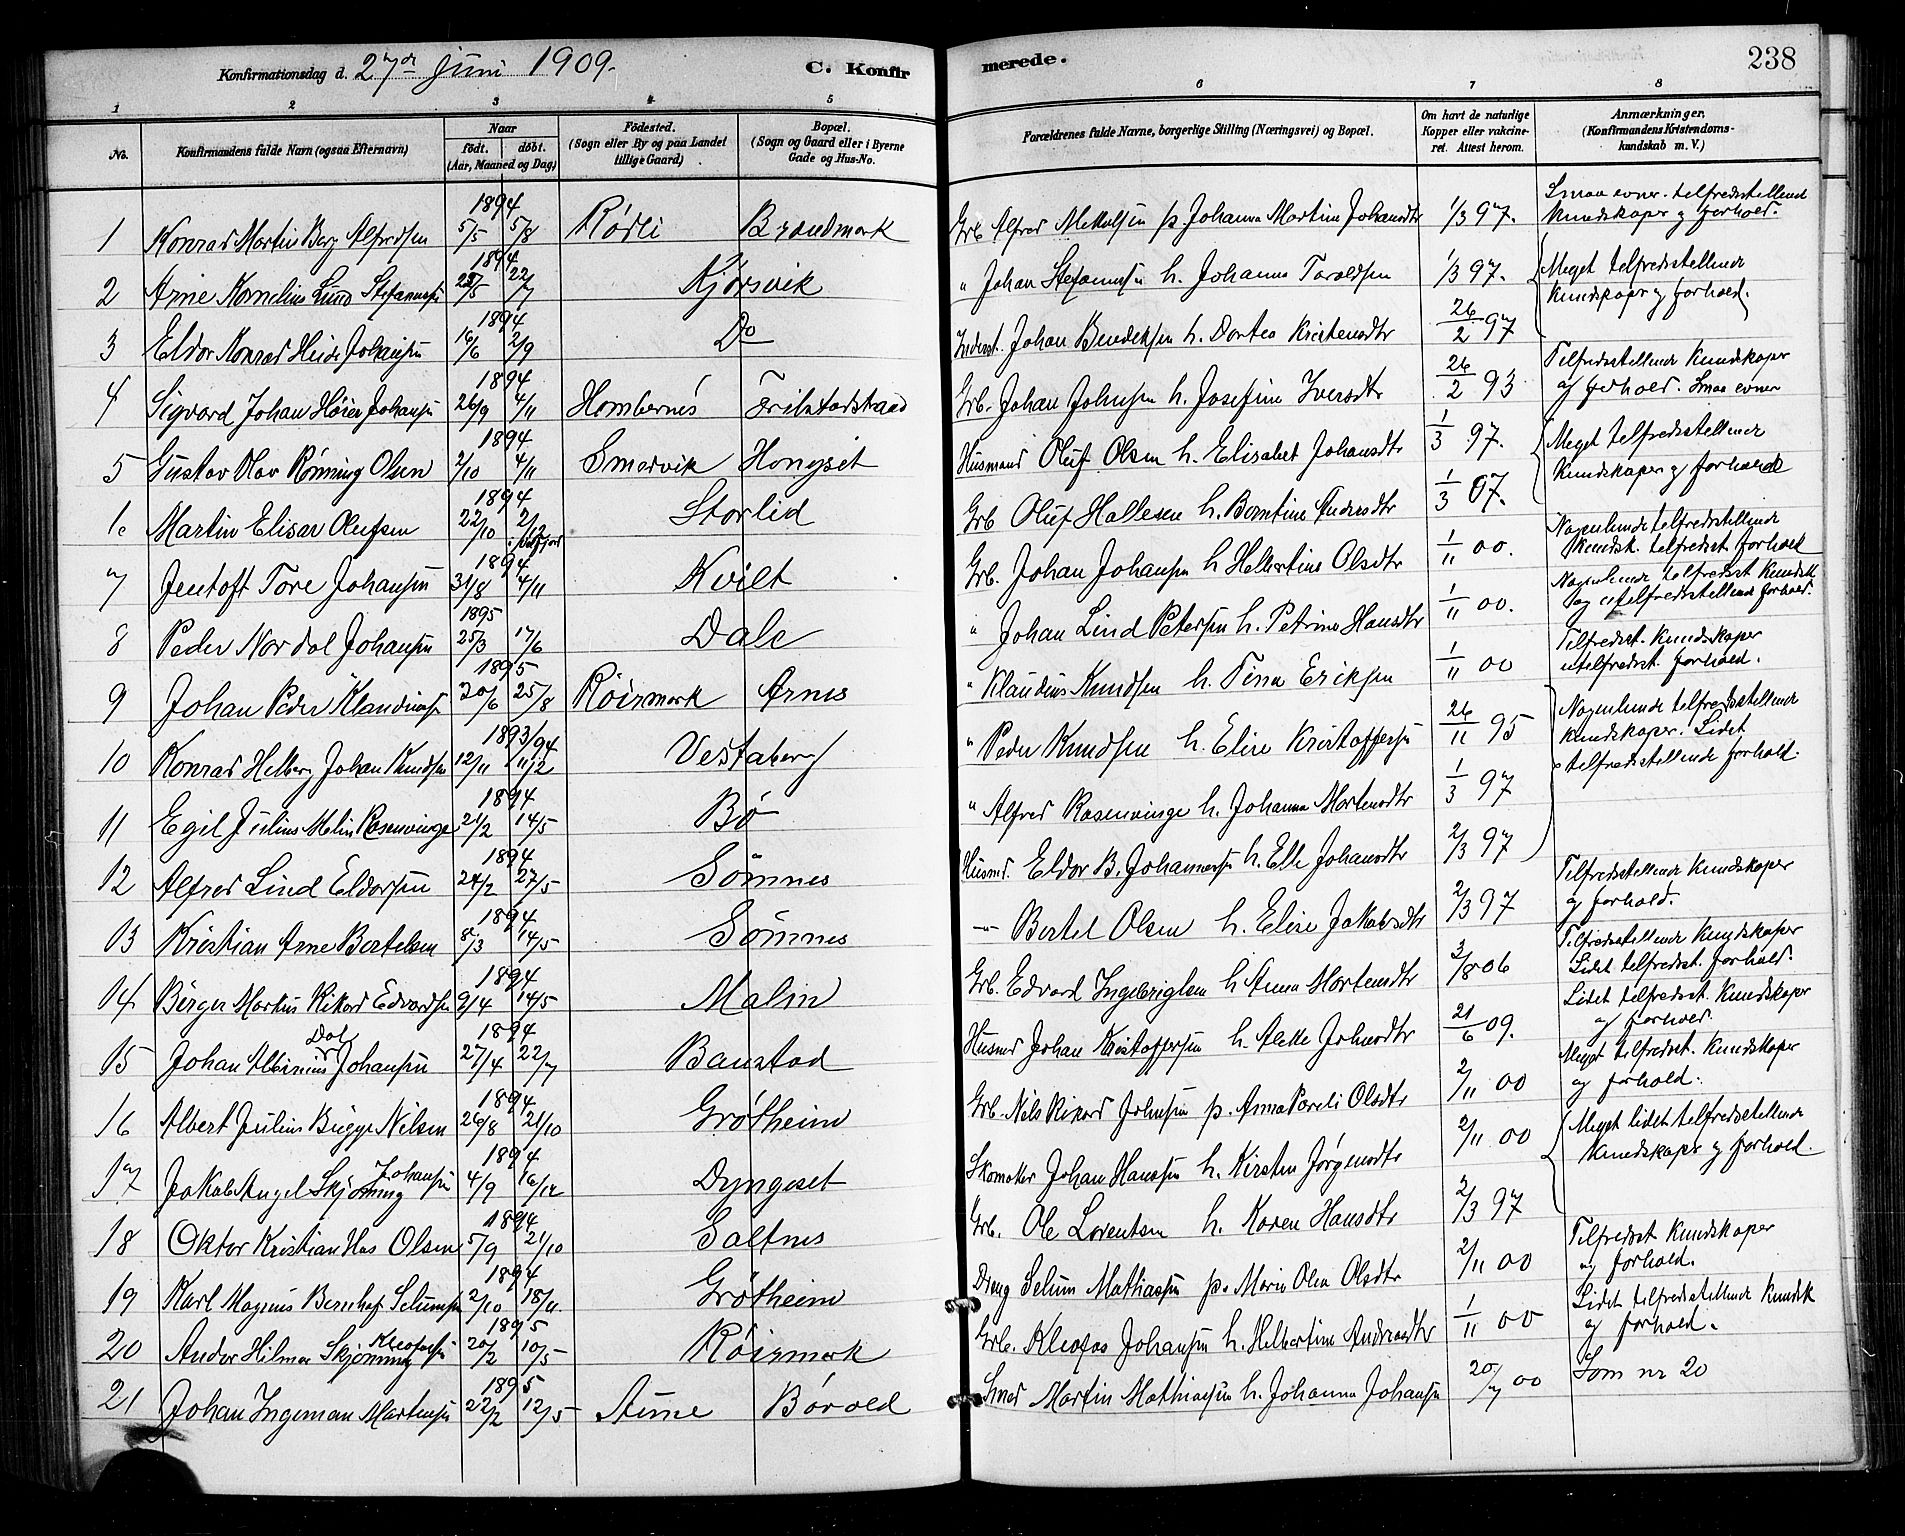 Konfirmationsdag d. 27de Juni 1909. C. Konfir merede. 238
1 2 3 4 5 6 7 8
No. Konfirmandens fulde Navn (ogsaa Efternavn) Naar født. døbt. (Aar, Maaned og Dag) Fødested. (Sogn eller By og paa Landet tillige Gaard) Bopæl. (Sogn og Gaard eller i Byerne Gade og Hus-No. Forældrenes fulde Navne, borgerlige Stilling (Næringsvei) og Bopæl. Om havt de naturlige Kopper eller vakcineret. Attest herom. Anmærkninger. (Konfirmandens Kristendomskundskab m. V.)
1 Konrad Martin Berg Alfredsen 1894 5/5 5/8 Rødli Brandmark Grb Alfred Mekalsen p. Johanna Martine Johansdtr 1/3 97. Smaa evner. tilfredsstellende Kundskaper og forhold.
2 Arne Kornelius Lund Stefanusen 1894 22/5 22/7 Kjørsvik " Johan Stefanusen h. Johanna Taraldsen 1/3 97. Meget tilfredsstellende Kundskaper og forhold.
3 Eldor Konrad Heide Johansen 1894 16/6 2/9 Do Inderst. Johan Bendeksen h. Dortea Kristensdtr 26/2 97
4 Sigvard Johan Høier Johansen 1894 26/9 4/11 Hombernes Grb. Johan Johnsen h. Josefine Iversdtr 26/2 93 Tilfredsstellende Kundskaper og forhold. Smaa evner
5 Gustav Olav Rønning Olsen 1894 2/10 4/11 Smervik Hongset Husmand Oluf Olsen h. Elisabet Johansdtr 1/3 97. Meget tilfredsstellende Kundskaper og forhold
6 Martin Elisar Olufsen 1894 22/10 2/12 Storlid Grb Oluf Hallesen h. Berntine Andersdtr 1/3 07.
7 Jentoft Tore Johansen 1894 31/8 4/11 Kvilt Grb. Johan Johansen h Helbertine Olsdtr 1/11 00. Nogenlunde tilfredsstellende Kundsk. tilfredsst forhold
8 Peder Nordal Johansen 1895 25/3 17/6 Dale " Johan Lind Petersen h. Petrine Hansdtr 1/11 00. Nogenlunde tilfredsst Kundsk og utilfredsstellende forhold.
9 Johan Peder Klaudiusen 1895 20/6 25/8 Røirmark Arnes " Klaudius Knudsen h. Tina Eriksen 1/11 00 Tilfredsst. Kundskaper utilfredsst. forhold.
10 Konrad Helberg Johan Knudsen 1893/94 12/11 11/2 Vestaberg " Peder Knudsen h. Elise Kristoffersen 26/11 95 Nogenlunde tilfredsstellende Kundskaper. Lidet tilfredsstellende forhold.
11 Egil Julius Melin Rosenvinge 1894 21/2 14/5 Bø " Alfred Rosenvinge h. Johanna Mortensdtr 1/3 97
12 Alfred Lind Eldorsen 1894 24/2 27/5 Sømnes Husmd. Eldor B. Johannesen h. Elle Johansdtr 2/3 97 Tilfredsstellende Kundskaper og forhold.
13 Kristian Arne Bertelsen 1894 8/3 14/5 Sømnes " Bertel Olsen h. Elise Jakobsdtr 2/3 97 Tilfredsstellende Kundskaper Lidet tilfredsst. forhold.
14 Birger Martius Rikard Edvardsen 1894 9/4 14/5 Malin Grb. Edvard Ingebrigtsen h Anna Mortensdtr 3/8 06 Lidet tilfredsst. Kundskaper og forhold.
15 Johan Albinius Dal Johansen 1894 27/4 22/7 Baustad Husmd Johan Kristoffersen h. Aletle Johnsdtr 21/6 09. Meget tilfredsst. Kundskaper og forhold.
16 Albert Julius Bugge Nilsen 1894 26/8 21/10 Grøtheim Grb. Nils Rikard Johnsen p. Anna Pareli Olsdtr 2/11 00 Meget lidet tilfredsstellende Kundskaper og forhold.
17 Jakob Angel Skjønning Johansen 1894 4/9 16/12 Dyngeset Skomaker Johan Hansen h. Kirsten Jørgensdtr 2/11 00
18 Oktor Kristian Has Olsen 1894 5/9 21/10 Saltnes Grb. Ole Lorentsen h. Karen Hansdtr 2/3 97 Tilfredsst Kundskaper og forhold.
19 Karl Magnus Bernhof Selumsen 1894 2/10 18/11. Grøtheim Dreng Selum Mathiassen p. Marie Olea Olsdtr 2/11 00 Lidet tilfredsstellende Kundsk og forhold.
20 Andor Hilmar Skjønning Kleofassen 1895 20/2 10/5 Røirmark Grb. Kleofas Johansen h. Helbertine Andreasdtr 1/11 00 Som nr 20
21 Johan Ingeman Martinsen 1895 22/2 12/5 Aune Børvold Smed Martin Mathiassen h. Johanna Johansen 20/7 00